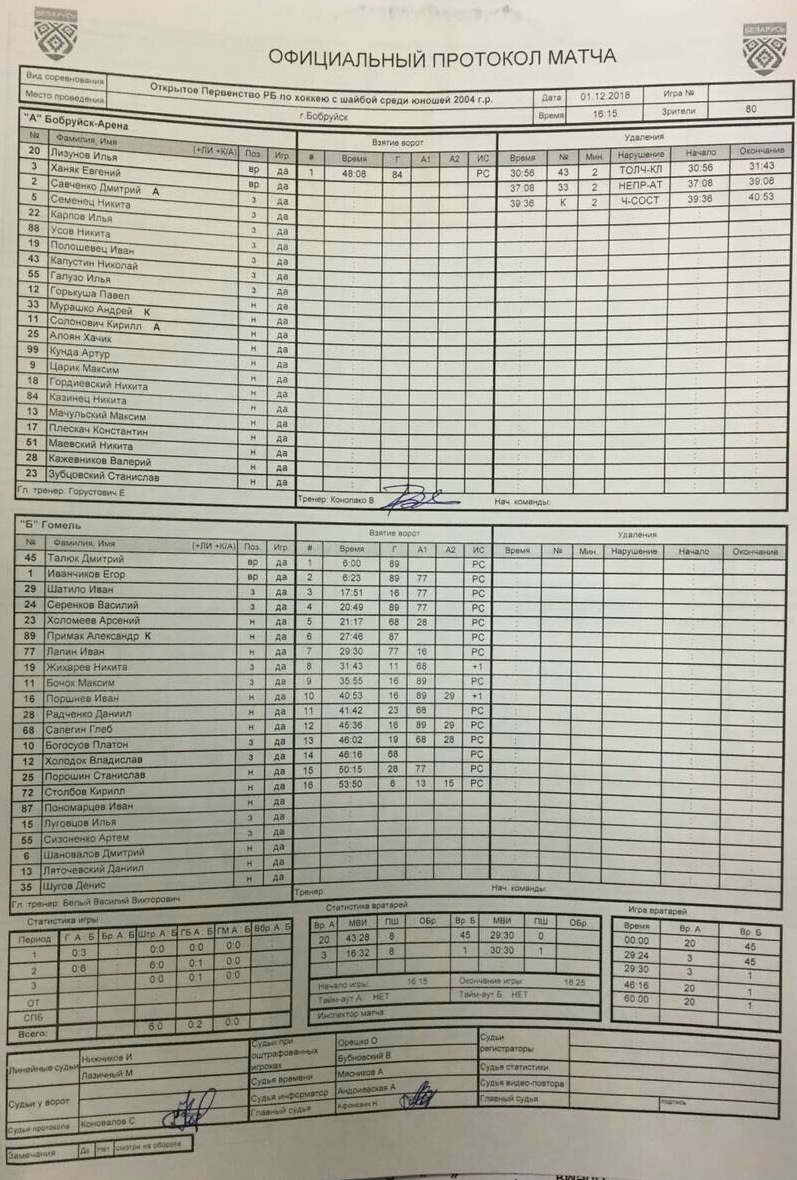 БЕЛАРУСЬ
БЕЛАРУСЬ
ОФИЦИАЛЬНЫЙ ПРОТОКОЛ МАТЧА
Вид соревнования Открытое Первенство РБ по хоккею с шайбой среди юношей 2004 г.р. Дата 01.12.2018 Игра №
Место проведения г.Бобруйск Время 16:15 Зрители 80
"А" Бобруйск-Арена Взятие ворот Удаления
№ Фамилия, Имя (+ЛИ +К/А) Поз. Игр. # Время Г А1 А2 ИС Время № Мин. Нарушение Начало Окончание
20 Лизунов Илья вр да 1 48:08 84 РС 30:56 43 2 ТОЛЧ-КЛ 30:56 31:43
3 Ханяк Евгений вр да 37:08 33 2 НЕПР-АТ 37:08 39:08
2 Савченко Дмитрий А з да 39:36 К 2 Ч-СОСТ 39:36 40:53
5 Семенец Никита з да
22 Карпов Илья з да
88 Усов Никита з да
19 Полошевец Иван з да
43 Капустин Николай з да
55 Галузо Илья з да
12 Горькуша Павел н да
33 Мурашко Андрей К н да
11 Солонович Кирилл А н да
25 Алоян Хачик н да
99 Кунда Артур н да
9 Царик Максим н да
18 Гордиевский Никита н да
84 Казинец Никита н да
13 Мачульский Максим н да
17 Плескач Константин н да
51 Маевский Никита н да
28 Кажевников Валерий н да
23 Зубцовский Станислав н да
Гл. тренер: Горустович Е Тренер: Конопако В Нач. команды:
"Б" Гомель Взятие ворот Удаления
№ Фамилия, Имя (+ЛИ +К/А) Поз. Игр. # Время Г А1 А2 ИС Время № Мин. Нарушение Начало Окончание
45 Талюк Дмитрий вр да 1 6:00 89 РС
1 Иванчиков Егор вр да 2 6:23 89 77 РС
29 Шатило Иван з да 3 17:51 16 77 РС
24 Серенков Василий з да 4 20:49 89 77 РС
23 Холомеев Арсений н да 5 21:17 68 28 РС
89 Примак Александр К н да 6 27:46 87 РС
77 Лапин Иван н да 7 29:30 77 16 РС
19 Жихарев Никита з да 8 31:43 11 68 +1
11 Бочок Максим з да 9 35:55 16 89 РС
16 Поршнев Иван н да 10 40:53 16 89 29 +1
28 Радченко Даниил н да 11 41:42 23 68 РС
68 Сапегин Глеб н да 12 45:36 16 89 29 РС
10 Богосуов Платон з да 13 46:02 19 68 28 РС
12 Холодок Владислав з да 14 46:16 68 РС
25 Порошин Станислав н да 15 50:15 28 77 РС
72 Столбов Кирилл н да 16 53:50 6 13 15 РС
87 Пономарцев Иван н да
15 Луговцов Илья з да
55 Сизоненко Артем з да
6 Шановалов Дмитрий н да
13 Ляточевский Даниил н да
35 Шугов Денис н да
Гл. тренер: Белый Василий Викторович Тренер: Нач. команды:
Статистика игры Статистика вратарей Игра вратарей
Период Г А : Б Бр А : Б Штр. А : Б ГБ А : Б ГМ А : Б Вбр А : Б Вр. А МВИ ПШ ОБр. Вр. Б МВИ ПШ ОБр. Время Вр. А Вр. Б
1 0:3 0:0 0:0 0:0 20 43:28 8 45 29:30 0 00:00 20 45
2 0:6 6:0 0:1 0:0 3 16:32 8 1 30:30 1 29:24 3 45
3 0:0 0:1 0:0 29:30 3 1
ОТ Начало игры: 16:15 Окончание игры: 18:25 46:16 20 1
СПБ Тайм-аут А: НЕТ Тайм-аут Б: НЕТ 60:00 20 1
Всего: 6:0 0:2 0:0 Инспектор матча:
Линейные судьи Нижников И Судьи при оштрафованных игроках Орешко О Судьи регистраторы
Лазичный М Бубновский В
Судья времени Мясников А Судья статистики
Судьи у ворот Судья информатор Андриевская А Судья видео-повтора
Судья протокола Коновалов С Главный судья Главный судья подпись
Замечания Да Нет смотри на обороте